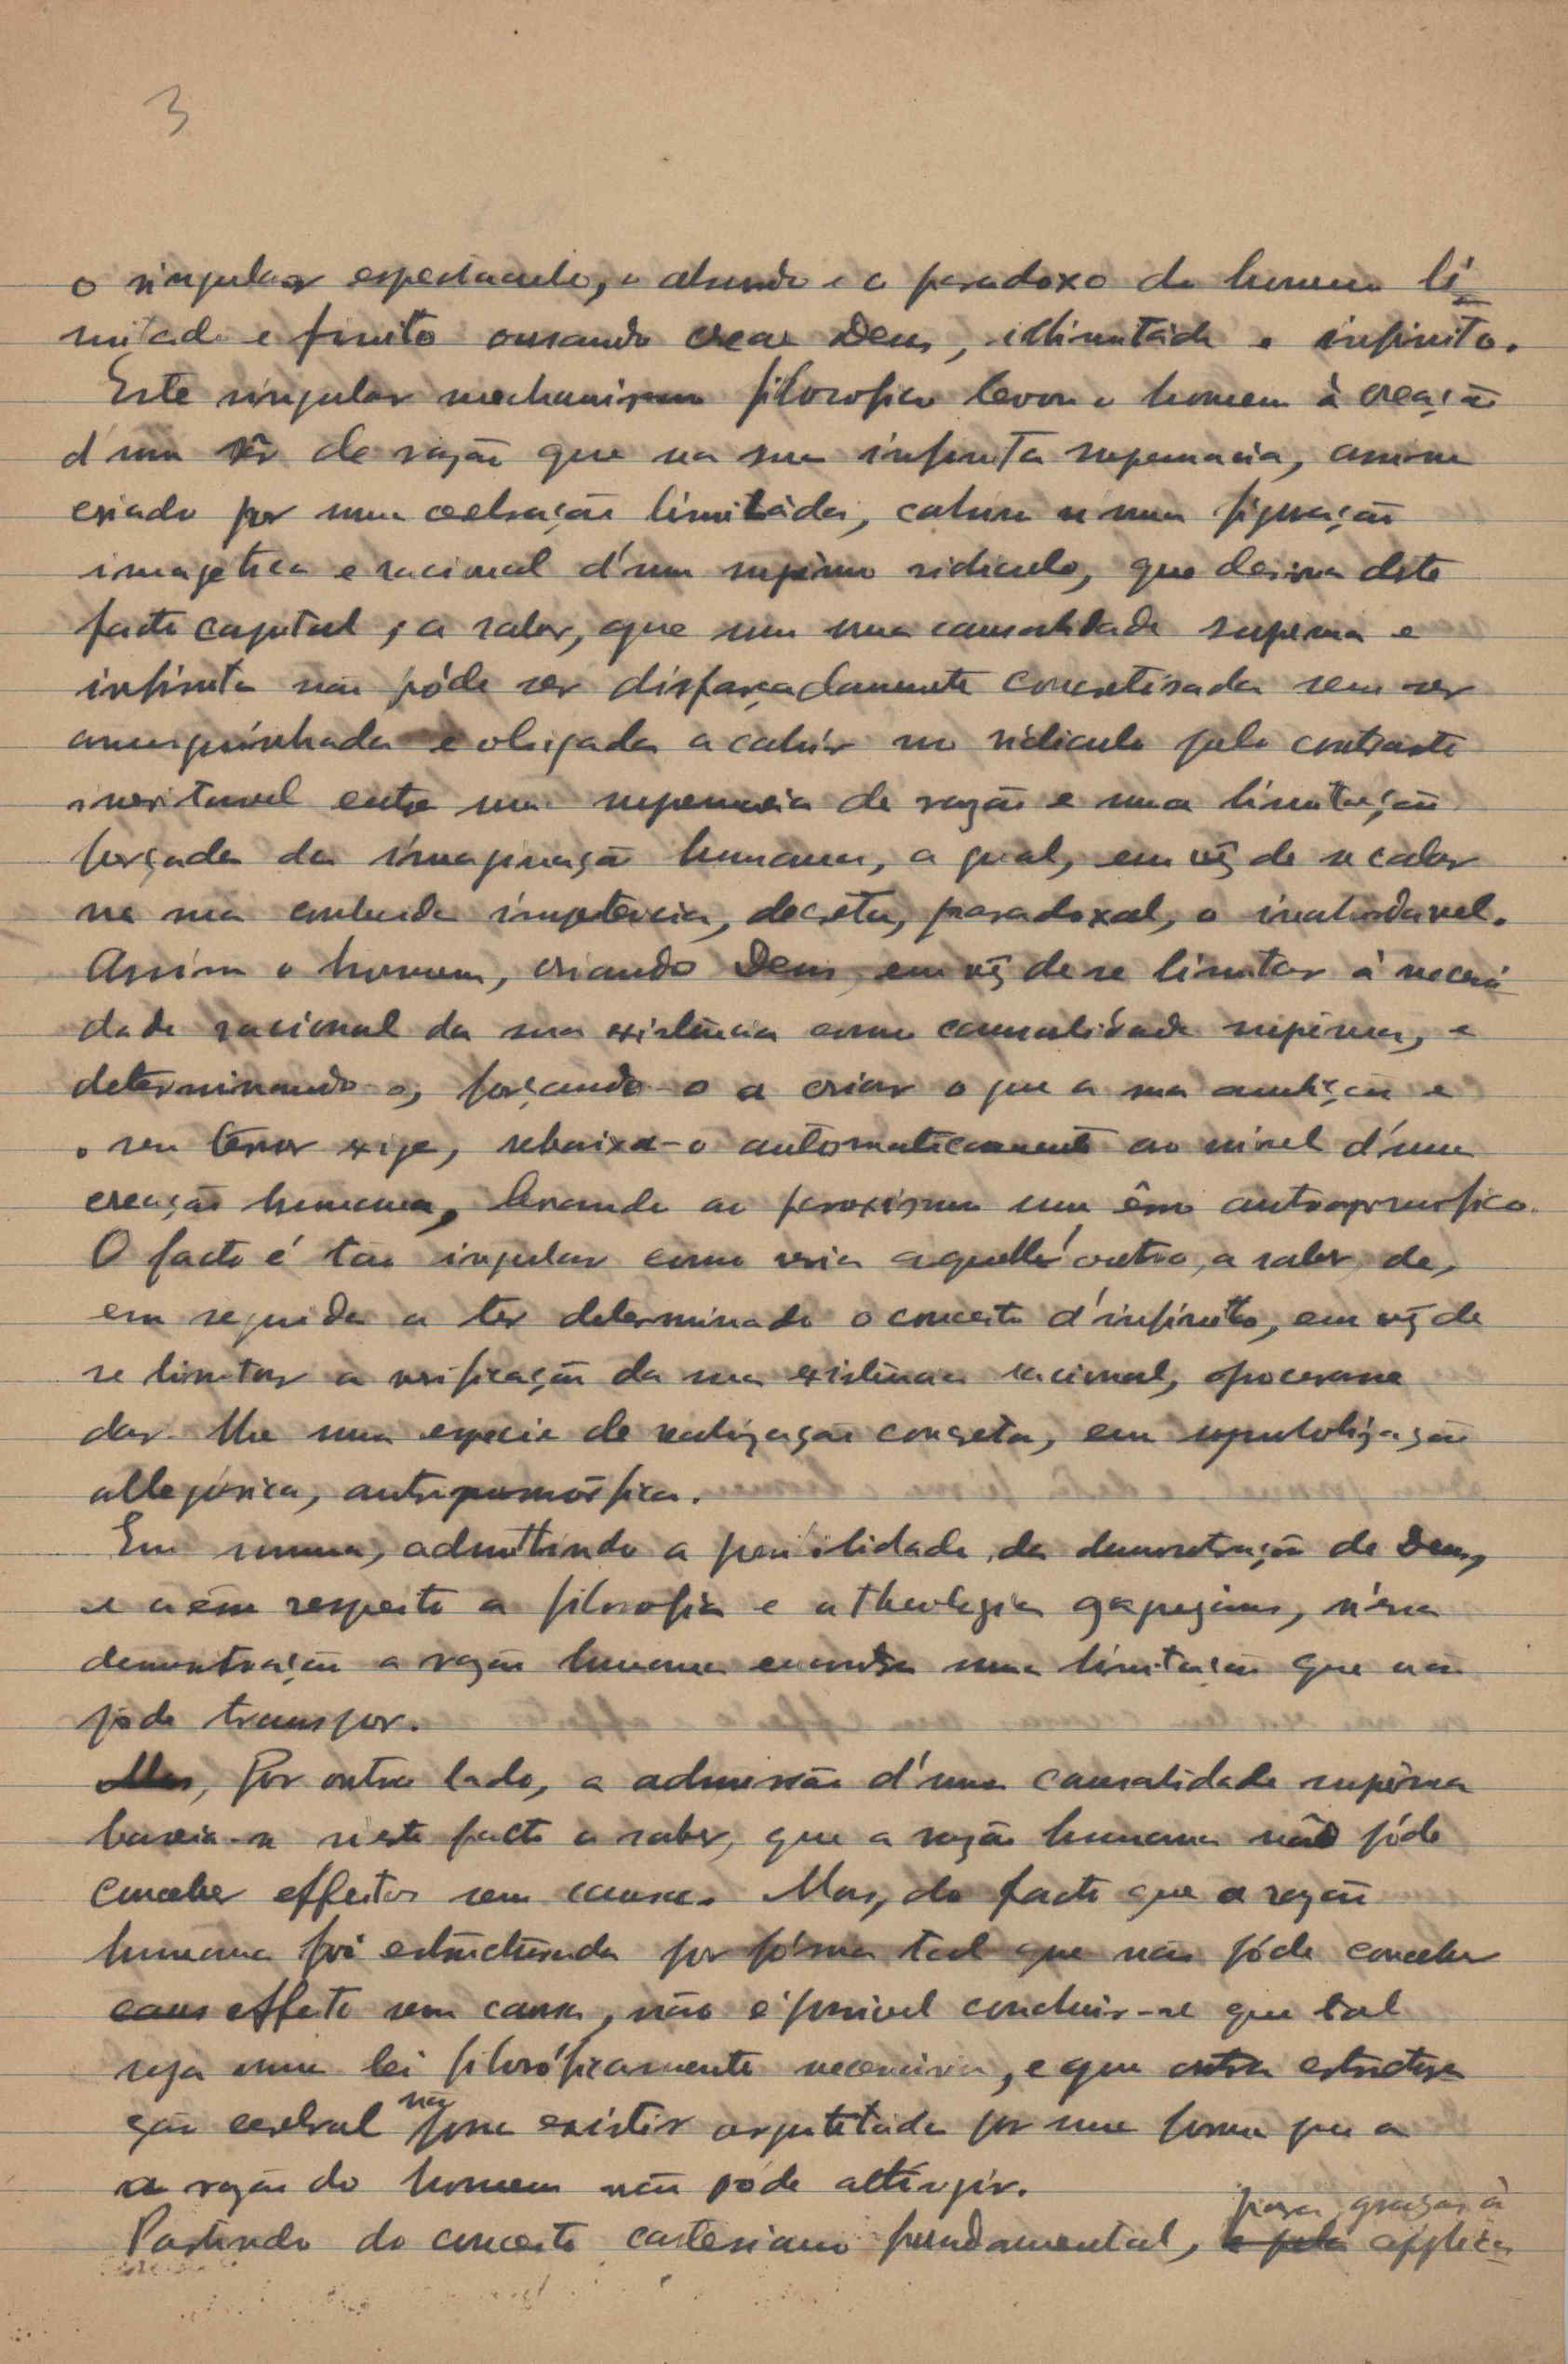 3
o singular espectaculo, o absurdo e o paradoxo do homem li-
mitado e finito ousando crear Deus, illimitado e infinito.
Este singular mechanismo filosofico levou o homem à creação
d'um sêr de razão que na sua infinita supremacia, assim
criado por uma cerebração limitáda, cahiu n'uma figuração
imagetica e racional d'um supremo ridiculo, que deriva deste
facto capital, a saber, que uma causalidade suprema e
infinita não póde ser disfarçadamente concretisada sem ser
amesquinhada e obrigada a cahir no ridiculo pelo contraste
inevitavel entre uma supremacia de razão e uma limitação
forçada da imaginação humana, a qual, em vêz de se calar
na sua impotencia, decreta, paradoxal, o inabordavel.
Assim o homem, criando Deus, em vêz de se limitar à necessi-
dade racional da sua existencia como causalidade suprema, e
determinando-o, forçando-o a criar o que a sua ambição e
o seu terror exige, rebaixa-o automaticamente ao nivel d'uma
creação humana, levando ao paroxismo um êrro antropomorfico.
O facto é tão singular como seria aquelle outro, a saber, de,
em seguida a ter determinado o conceito d'infinito, em vêz de
se limitar a verificação da sua existencia racional, procurasse
dar-lhe uma especie de realização concreta, em symbolização
allegórica, antropomórfica.
Em summa, admittindo a possibilidade da demonstração de Deus,
respeito a filosofia e a theologia, n'essa
demonstração a razão humana encontra uma limitação que não
póde transpor.
Mas, Por outro lado, a admissão d'uma causalidade suprêma
baseia-se n'este facto a saber, que a razão humana não póde
conceber effeitos sem causa. Mas, do facto que a razão
humana foi estructurada por fórma tal que não póde conceber
caus effeito sem causa, não é possivel concluir-se que tal
seja uma lei filosóficamente necessaria, e que outra estructura
ção cerebral não possa existir arquitetada por uma forma que a
a razão do homem não póde attingir.
Partindo do conceito cartesiano fundamental, e pela para, graças à applica-